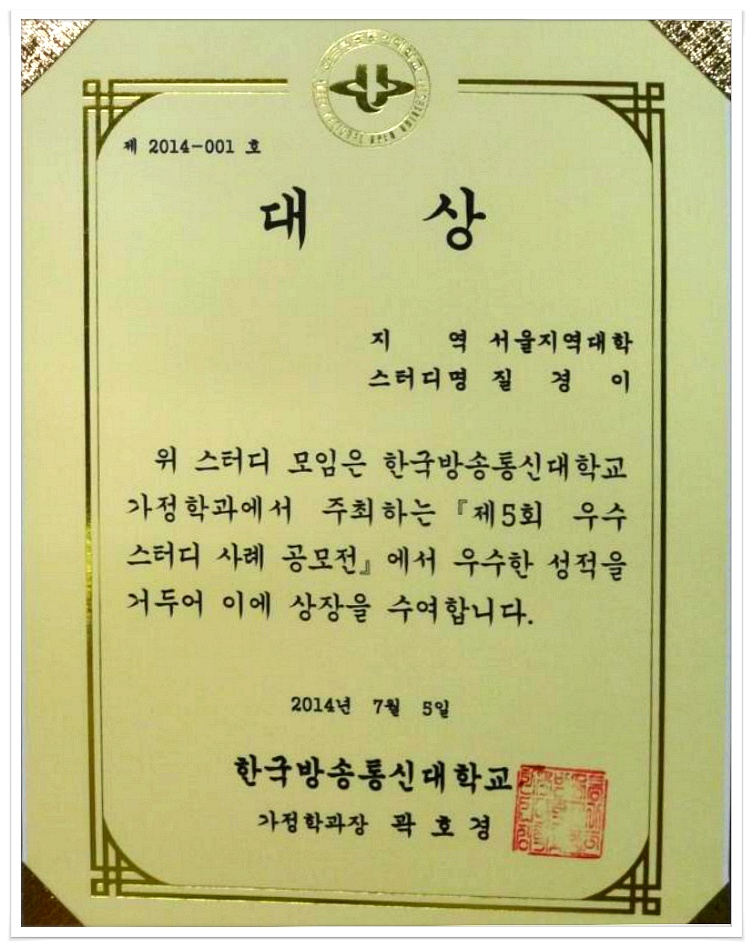 제 2014-001 호
대 상
지 역 서울지역대학
스터디명 질 경 이
위 스터디 모임은 한국방송통신대학교
가정학과에서 주최하는 『제5회 우수
스터디 사례 공모전』에서 우수한 성적을
거두어 이에 상장을 수여합니다.
2014년 7월 5일
한국방송통신대학교
가정학과장 곽 호 경